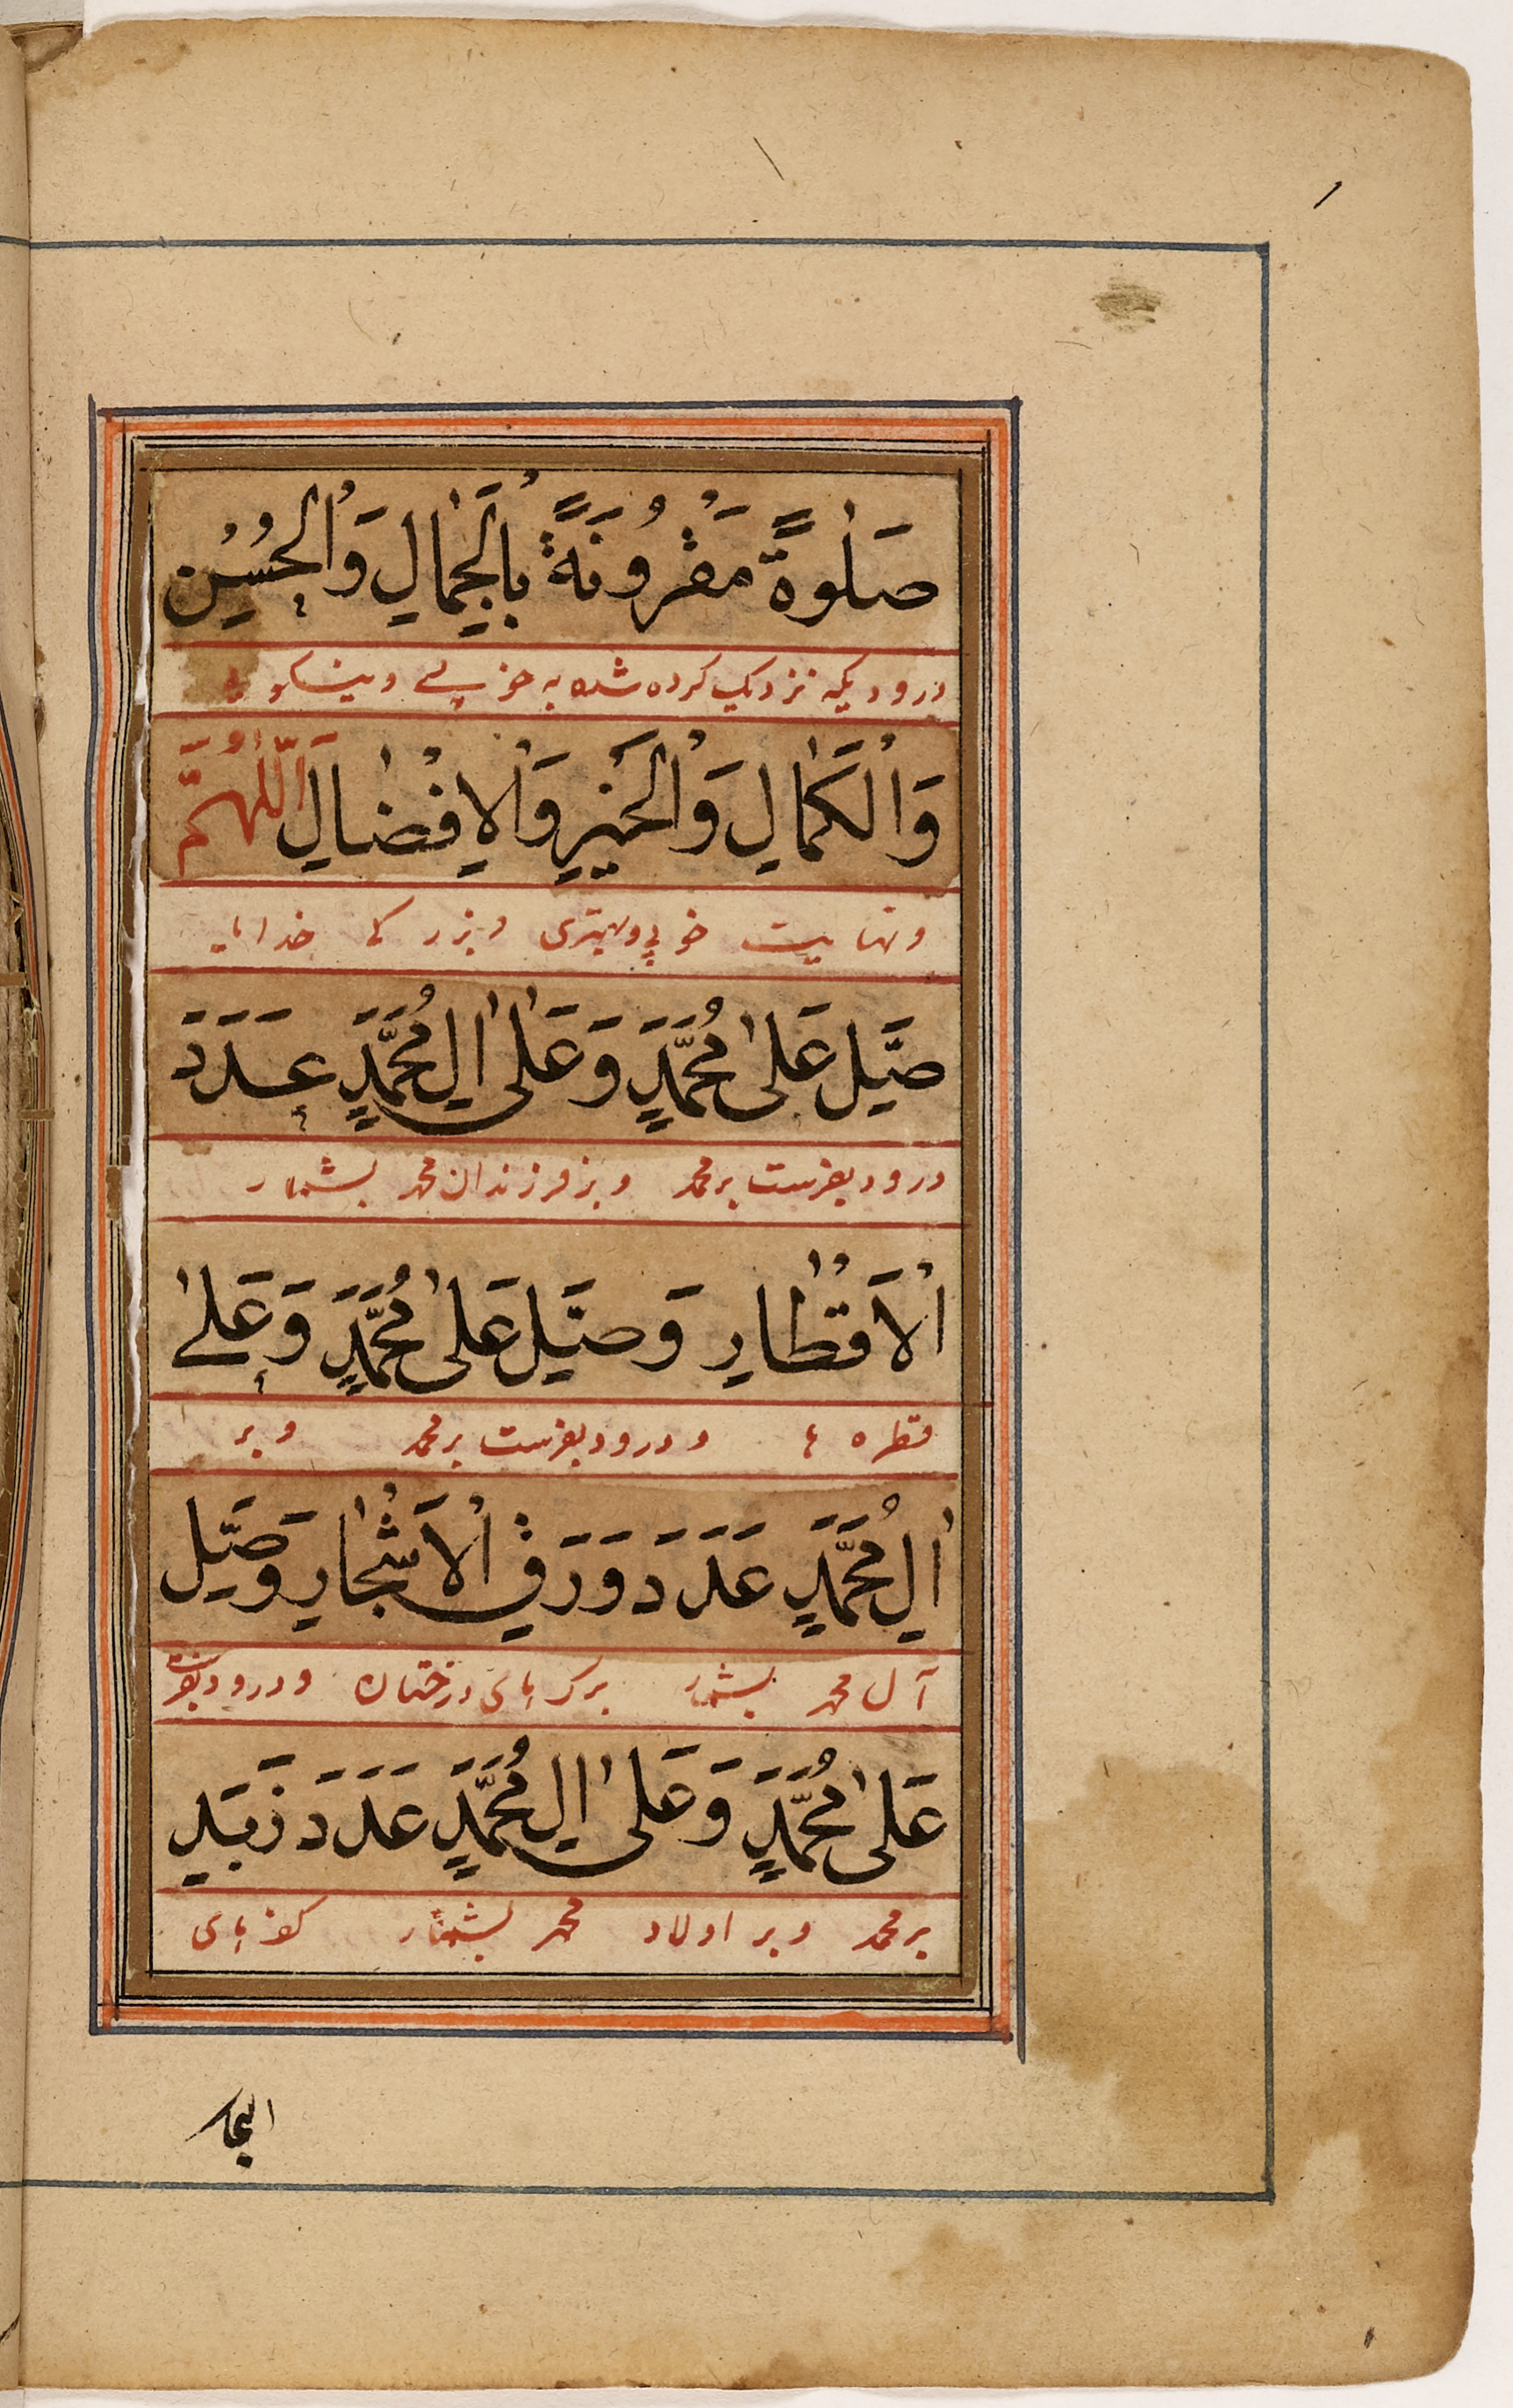 صَلٰوةً مَقْرُونَةً بِالْجَمٰالِ وَالْحُسْنِ
درودیکه نزدیک کرده شده به خوبی و نیکویی
وَالْكَمٰالِ وَالْخَيْرِ وَالْاِفْضٰالِ اَللّٰهُمَّ
و نهایت خوبی و بهتری و بزرکی خدایا
صَلِّ عَلٰى مُحَمَّدٍ وَعَلٰى اٰلِ مُحَمَّدٍ عَدَدَ
درود بفرست بر محمد و بر فرزندان محمد بشمار
الْاَقْطٰارِ وَصَلِّ عَلٰى مُحَمَّدٍ وَعَلٰى
قطره ها و درود بفرست بر محمد و بر
اٰلِ مُحَمَّدٍ عَدَدَ وَرَقِ الْاَشْجٰارِ وَصَلِّ
آل محمد بشمار برک های درختان و درود بفرست
عَلٰى مُحَمَّدٍ وَعَلٰى اٰلِ مُحَمَّدٍ عَدَدَ زَبَدِ
بر محمد و بر اولاد محمد بشمار کف های
البحار